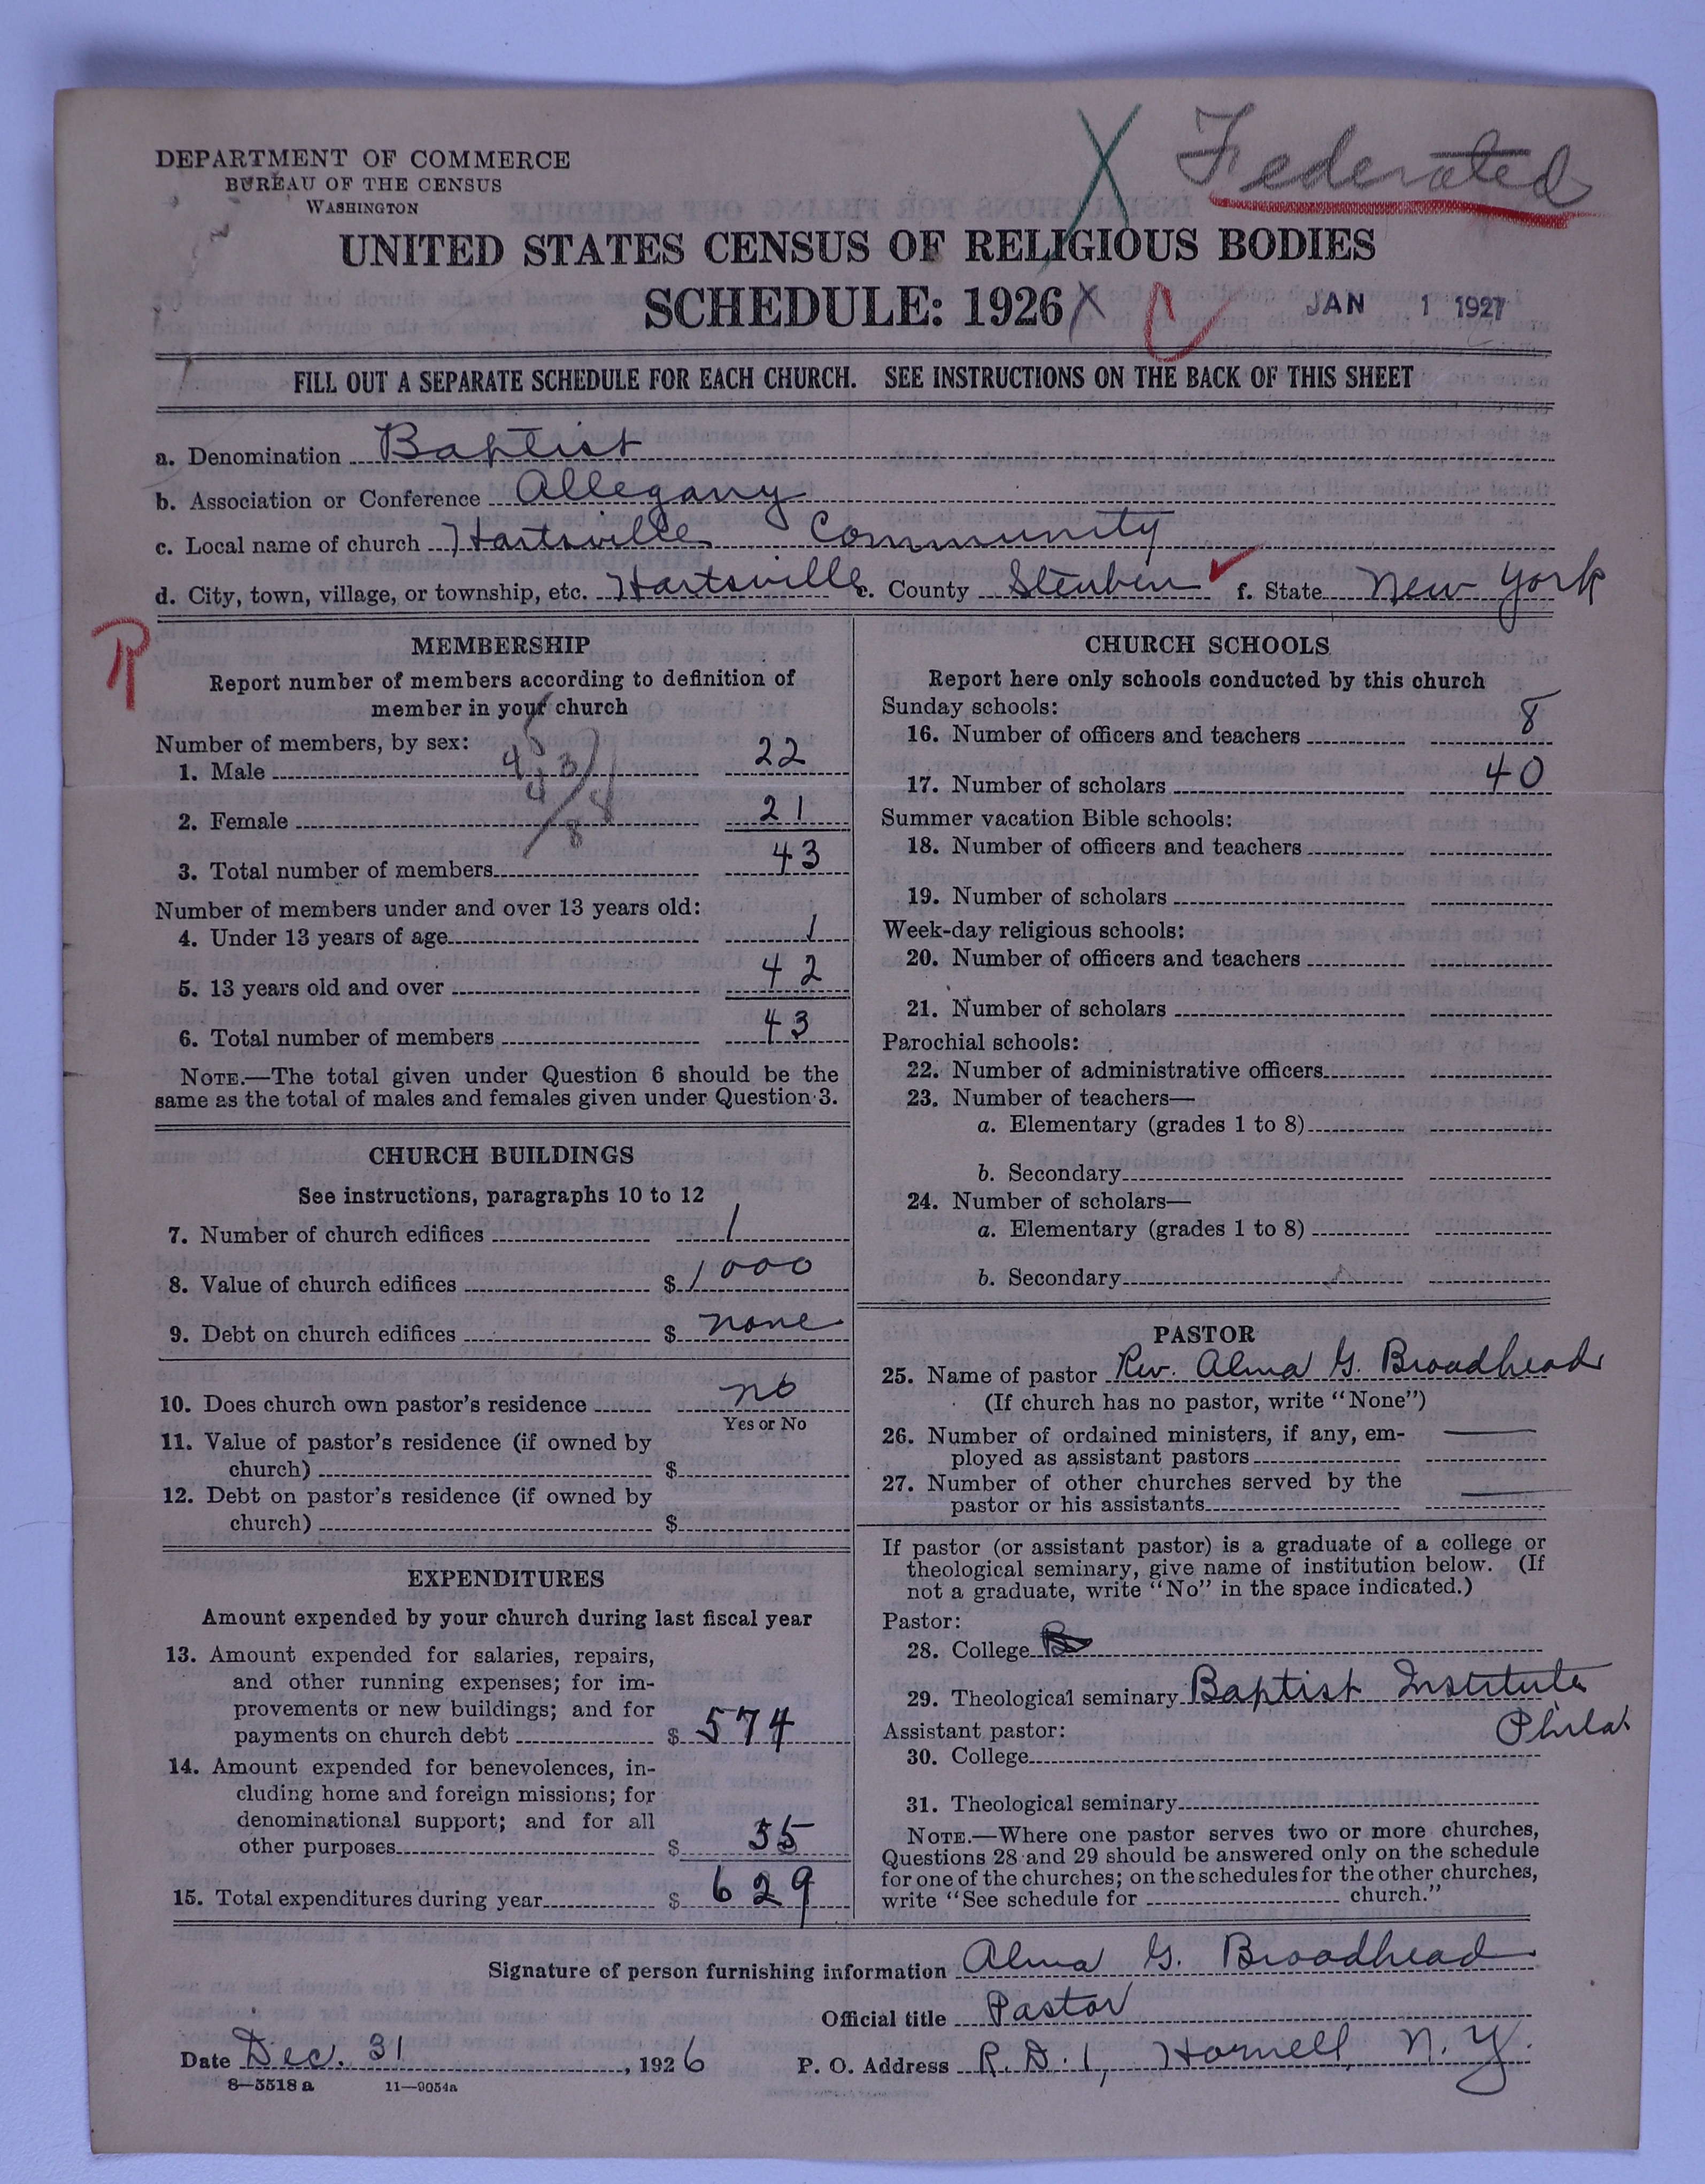 Federated
DEPARTMENT OF COMMERCE
BUREAU OF THE CENSUS
WASHINGTON
UNITED STATES CENSUS OF RELIGIOUS BODIES
SCHEDULE: 1926 X C JAN 1 1927
FILL OUT A SEPARATE SCHEDULE FOR EACH CHURCH. SEE INSTRUCTIONS ON THE BACK OF THIS SHEET
a. Denomination Baptist
b. Association or Conference Allegany
c. Local name of church Hartsville Community
d. City, town, village, or township, etc. Hartsville e. County Steuben f. State New York
R
MEMBERSHIP
Report number of members according to definition of
member in your church
Number of members, by sex:
1. Male 22
2. Female 21
3. Total number of members 43
Number of members under and over 13 years old:
4. Under 13 years of age 1
5. 13 years old and over 42
6. Total number of members 43
NOTE.—The total given under Question 6 should be the
same as the total of males and females given under Question 3.
CHURCH BUILDINGS
See instructions, paragraphs 10 to 12
7. Number of church edifices 1
8. Value of church edifices $ 1000
9. Debt on church edifices $ none
10. Does church own pastor's residence no
Yes or No
11. Value of pastor's residence (if owned by
church) $
12. Debt on pastor's residence (if owned by
church) $
EXPENDITURES
Amount expended by your church during last fiscal year
13. Amount expended for salaries, repairs,
and other running expenses; for im-
provements or new buildings; and for
payments on church debt $ 574
14. Amount expended for benevolences, in-
cluding home and foreign missions; for
denominational support; and for all
other purposes $ 55
15. Total expenditures during year $ 629
CHURCH SCHOOLS
Report here only schools conducted by this church
Sunday schools:
16. Number of officers and teachers 8
17. Number of scholars 40
Summer vacation Bible schools:
18. Number of officers and teachers
19. Number of scholars
Week-day religious schools:
20. Number of officers and teachers
21. Number of scholars
Parochial schools:
22. Number of administrative officers
23. Number of teachers—
a. Elementary (grades 1 to 8)
b. Secondary
24. Number of scholars—
a. Elementary (grades 1 to 8)
b. Secondary
PASTOR
25. Name of pastor Rev. Alma G. Broadhead
(If church has no pastor, write "None")
26. Number of ordained ministers, if any, em-
ployed as assistant pastors
27. Number of other churches served by the
pastor or his assistants
If pastor (or assistant pastor) is a graduate of a college or
theological seminary, give name of institution below. (If
not a graduate, write "No" in the space indicated.)
Pastor:
28. College
29. Theological seminary Baptist Institute
Phila.
Assistant pastor:
30. College
31. Theological seminary
NOTE.—Where one pastor serves two or more churches,
Questions 28 and 29 should be answered only on the schedule
for one of the churches; on the schedules for the other churches,
write "See schedule for church."
Signature of person furnishing information Alma G. Broadhead
Official title Pastor
Date Dec. 31, 1926 P. O. Address R. D. 1, Hornell, N. Y.
8—5518a 11—9054a